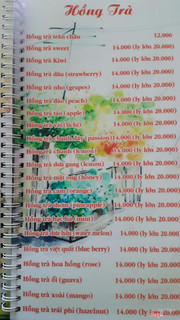 Hồng Trà
Hồng trà trân châu 12.000
Hồng trà sweet 14.000 (ly lớn 20.000)
Hồng trà Kiwi 14.000 (ly lớn 20.000)
Hồng trà dâu (strawberry) 14.000 (ly lớn 20.000)
Hồng trà nho (grapes) 14.000 (ly lớn 20.000)
Hồng trà đào (peach) 14.000 (ly lớn 20.000)
Hồng trà táo (apple) 14.000 (ly lớn 20.000)
Hồng trà vải (lichi) 14.000 (ly lớn 20.000)
Hồng trà chanh dây (passion) 14.000 (ly lớn 20.000)
Hồng trà chanh (lemon) 14.000 (ly lớn 20.000)
Hồng trà dưa gang (lemon) 14.000 (ly lớn 20.000)
Hồng trà mật ong (honey) 14.000 (ly lớn 20.000)
Hồng trà cam (orange) 14.000 (ly lớn 20.000)
Hồng trà thơm (pineapple) 14.000 (ly lớn 20.000)
Hồng trà bạc hà (mint) 14.000 (ly lớn 20.000)
Hồng trà dưa hấu (water melon) 14.000 (ly lớn 20.000)
Hồng trà việt quất (blue berry) 14.000 (ly lớn 20.000)
Hồng trà hoa hồng (rose) 14.000 (ly lớn 20.000)
Hồng trà ổi (guava) 14.000 (ly lớn 20.000)
Hồng trà xoài (mango) 14.000 (ly lớn 20.000)
Hồng trà trái phỉ (hazelnut) 14.000 (ly lớn 20.000)